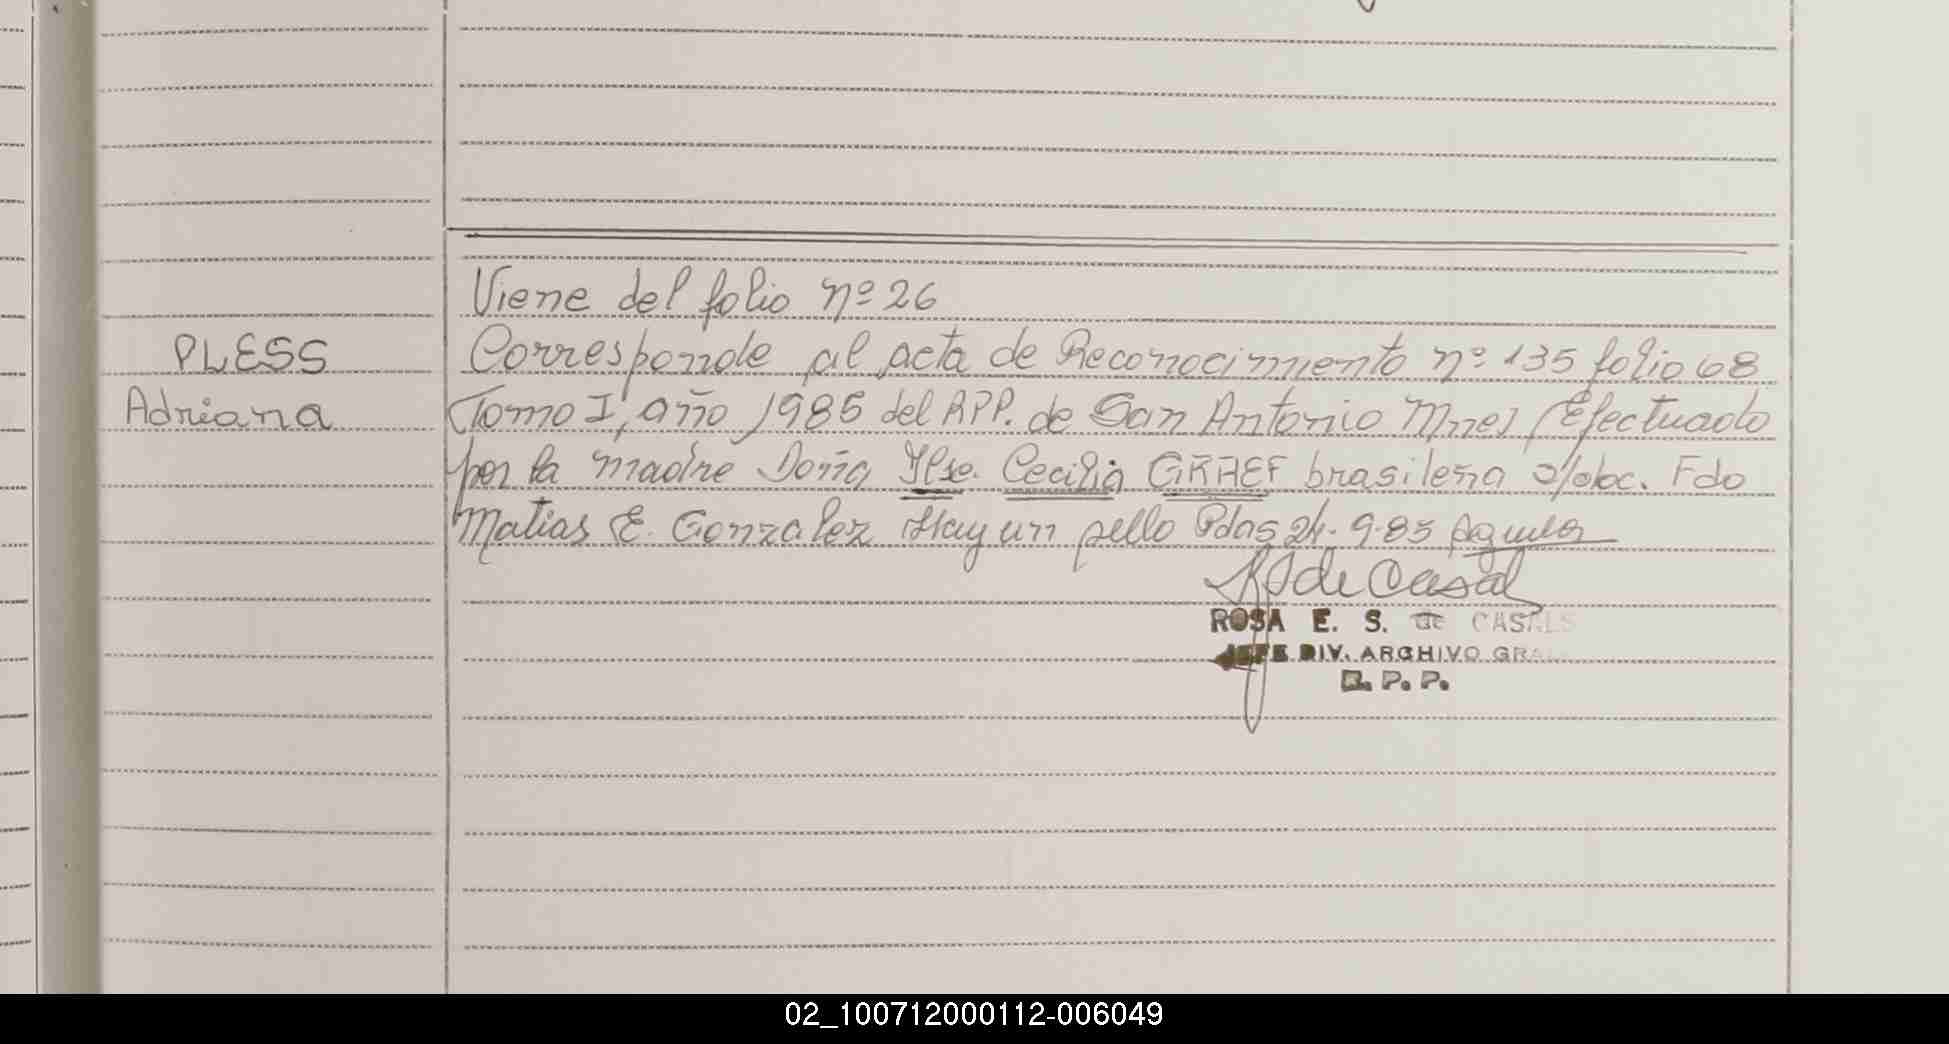 Viene del folio nº 26
PLESS
Adriana
Corresponde al acta de Reconocimiento nº 135 folio 68
Tomo I, año 1985 del RPP. de San Antonio Mnes Efectuado
por la madre Doña Ilse. Cecilia GRAEF brasileña s/doc. Fdo
Matias E. Gonzalez Hay un sello Pdas 24-9-85
de Casal
ROSA E. S. de CASALS
JEFE DIV. ARCHIVO GRAL
R. P. P.
02_100712000112-006049